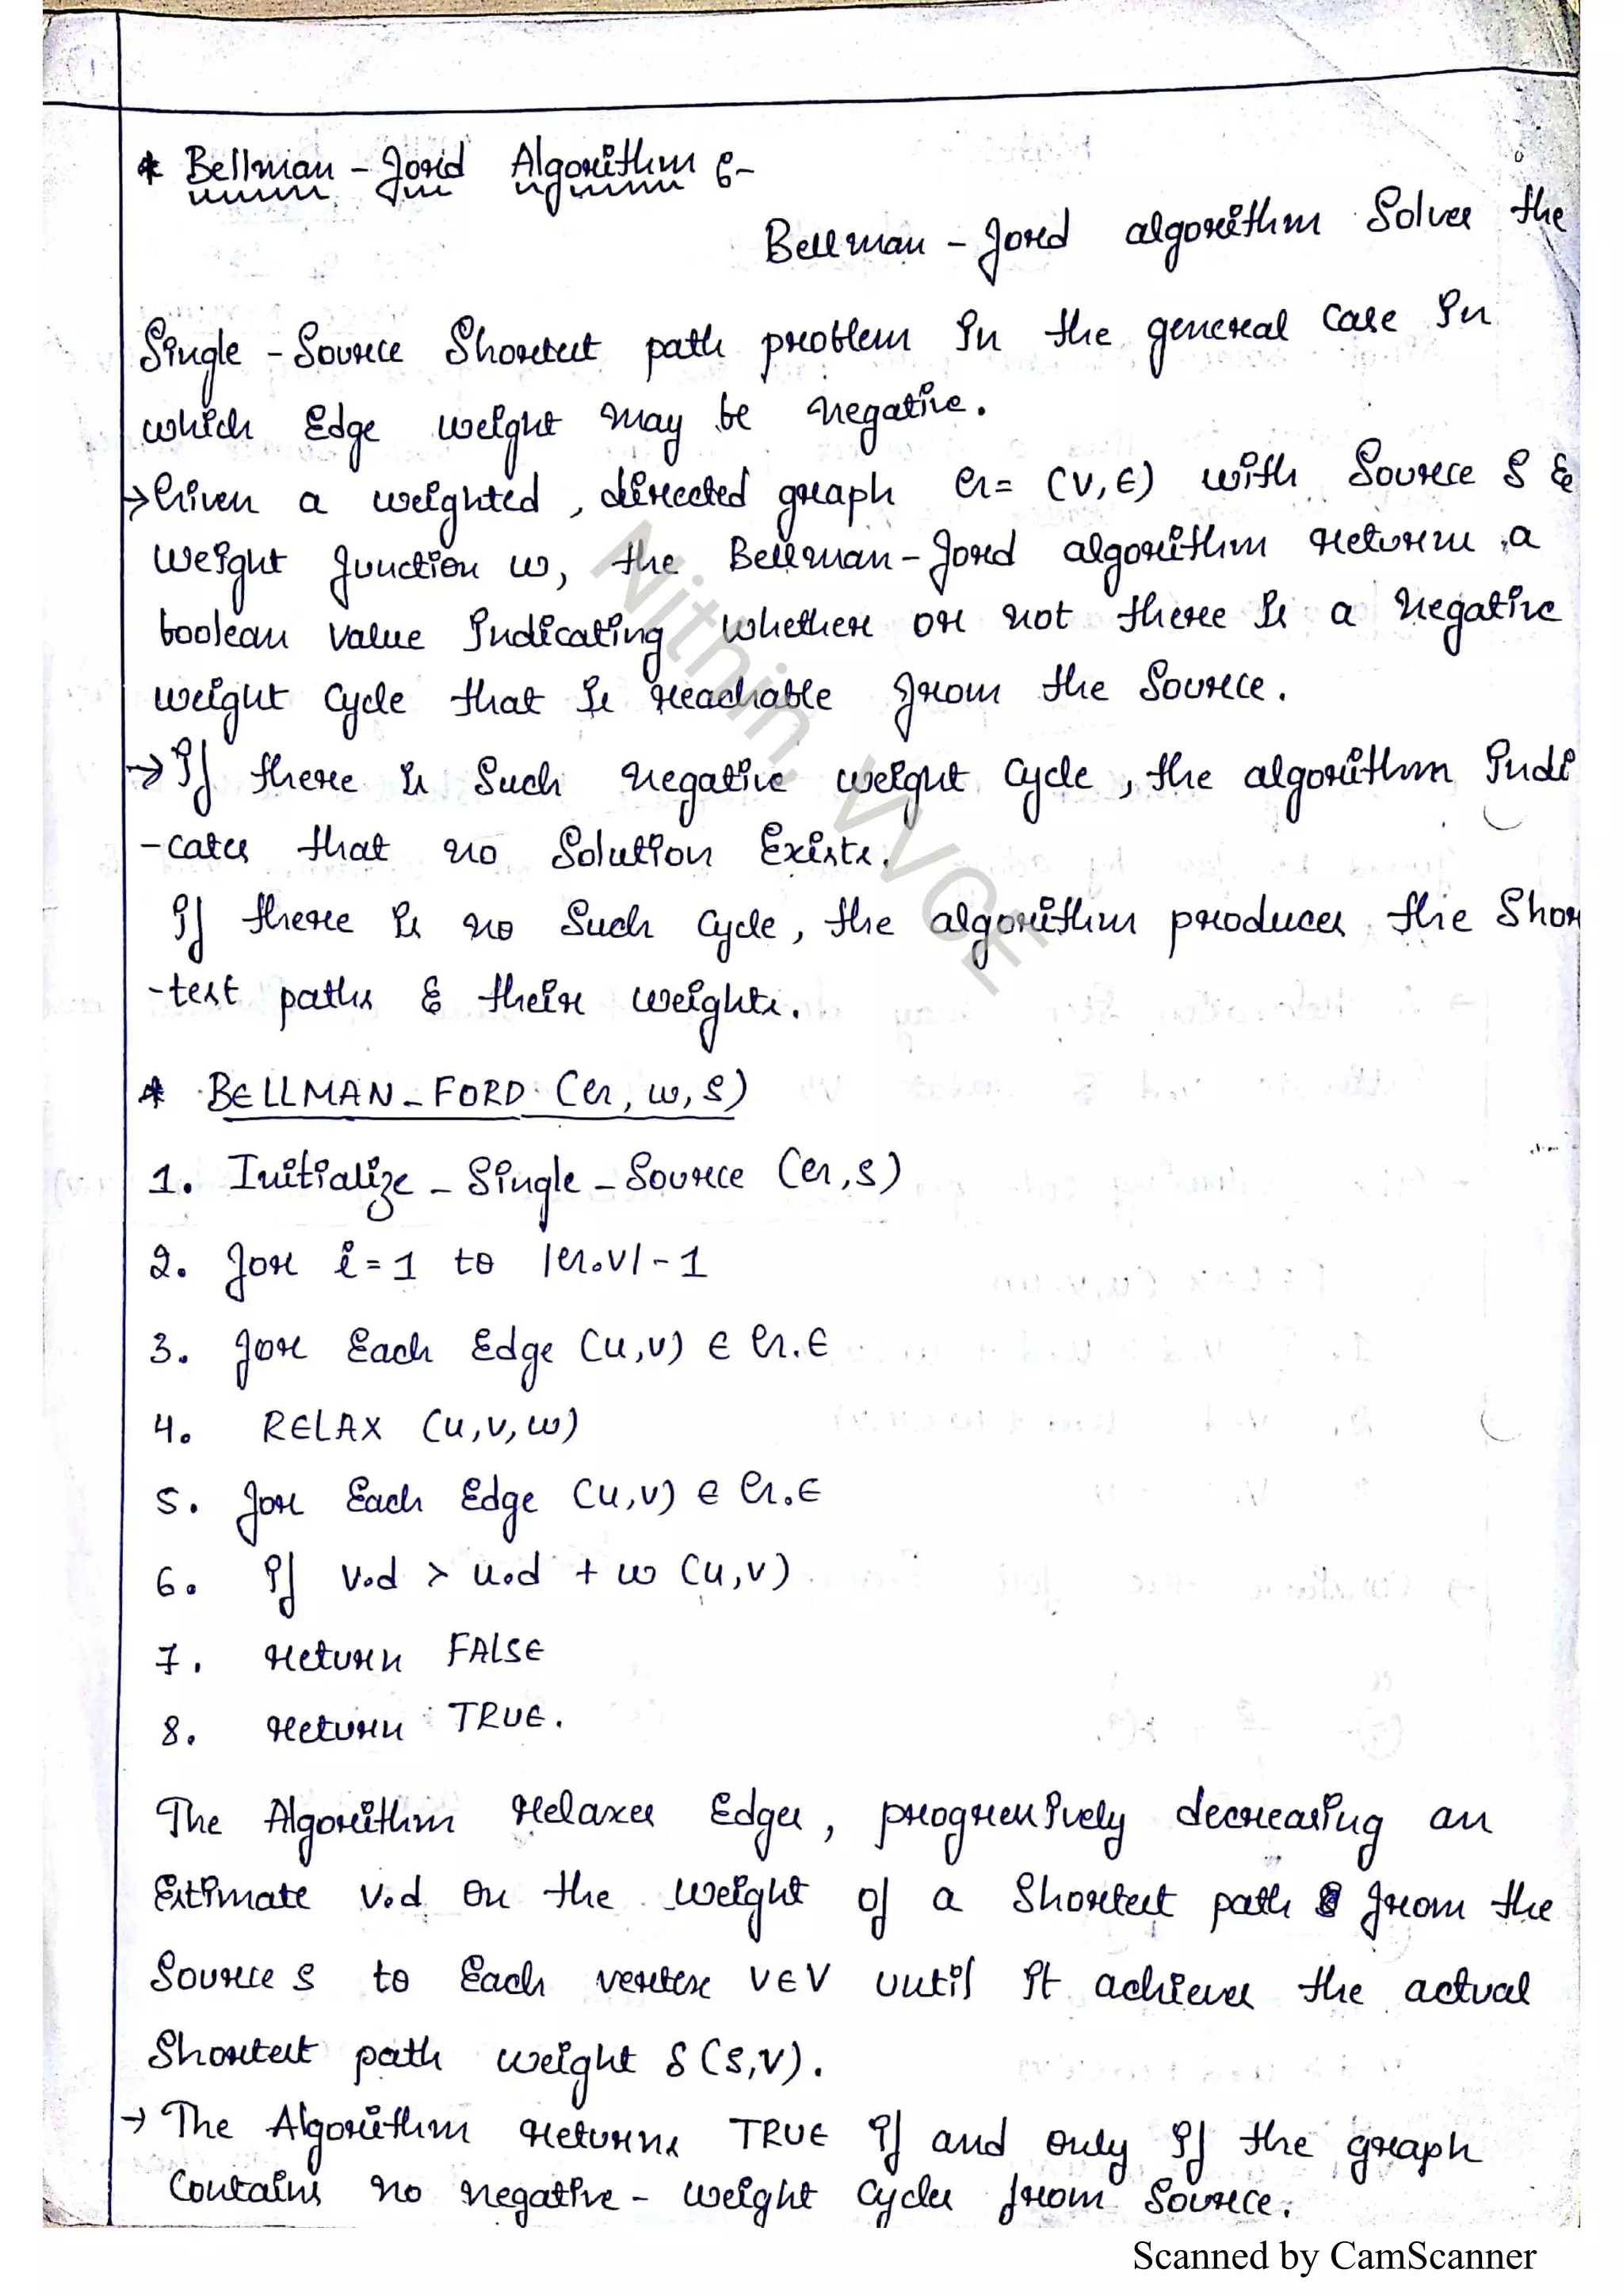 * Bellman-Ford Algorithm :-
Bellman-Ford algorithm Solves the
Single-Source Shortest path problem in the general case in
which Edge weight may be negative.
→ Given a weighted, directed graph G = (V,E) with Source S &
weight function w, the Bellman-Ford algorithm returns a
boolean value indicating whether or not there is a negative
weight cycle that is reachable from the source.
→ If there is such negative weight cycle, the algorithm indi
-cates that no solution Exists.
If there is no such cycle, the algorithm produces the Shor
-test paths & their weights.
* BELLMAN-FORD (G, w, S)
1. Initialize - Single - Source (G,S)
2. for i = 1 to |G.V| - 1
3. for Each Edge (u,v) ∈ G.E
4. RELAX (u,v,w)
5. for Each Edge (u,v) ∈ G.E
6. If v.d > u.d + w (u,v)
7. return FALSE
8. return TRUE.
The Algorithm relaxes Edges, progressively decreasing an
Estimate v.d on the weight of a shortest path from the
Source S to Each vertex v∈V until it achieves the actual
Shortest path weight δ(s,v).
→ The Algorithm returns TRUE if and only if the graph
Contains no negative-weight cycles from source.
Nithin, VVCE
Scanned by CamScanner